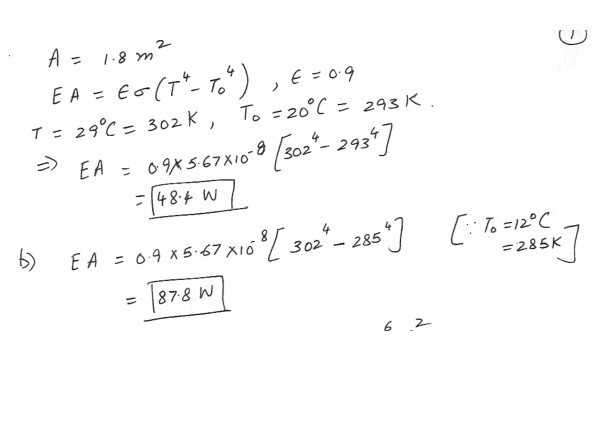 (1)
A = 1.8 m²
EA = Eσ(T⁴ - T₀⁴) , E = 0.9
T = 29°C = 302 K , T₀ = 20°C = 293 K .
⇒ EA = 0.9 × 5.67 × 10⁻⁸ [302⁴ - 293⁴]
= 48.4 W
b) EA = 0.9 × 5.67 × 10⁻⁸ [302⁴ - 285⁴] [∵ T₀ = 12°C
= 285K]
= 87.8 W
6 .2